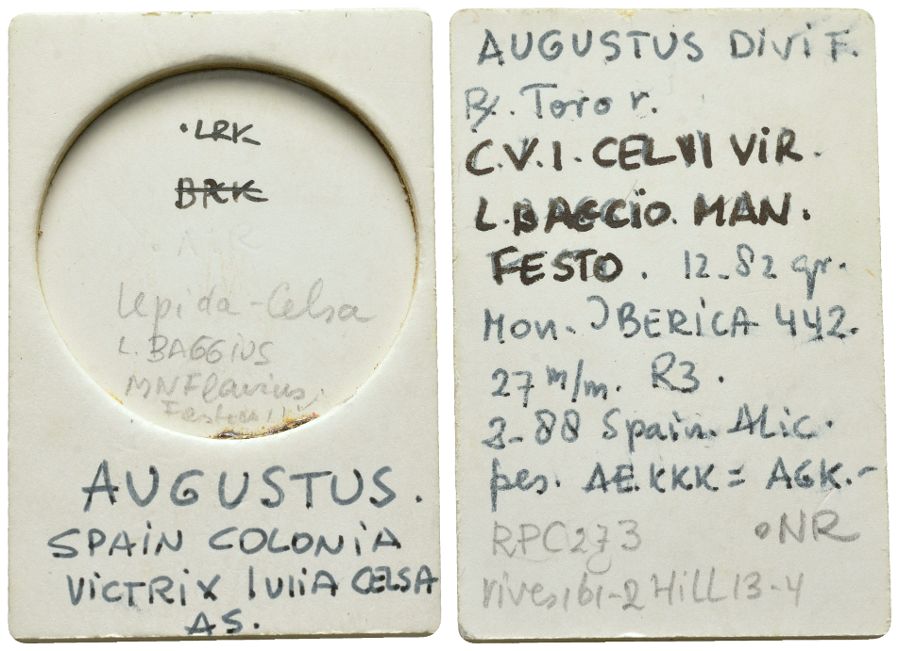 ·LRK
BRKK
Lepida-Celsa
L. BAGGIUS
MN Flavius
AUGUSTUS.
SPAIN COLONIA
VICTRIX IULIA CELSA
AS.
AUGUSTUS DIVI F.
R. Toro r.
C.V.I. CEL II VIR.
L. BAGGIO. MAN.
FESTO. 12-82 gr.
Mon. IBERICA 442.
27 m/m. R3.
3-88 Spain. Alic.
pes. AE.KKK = AGK.-
RPC273 •NR
Vives 161-2 Hill 13-4